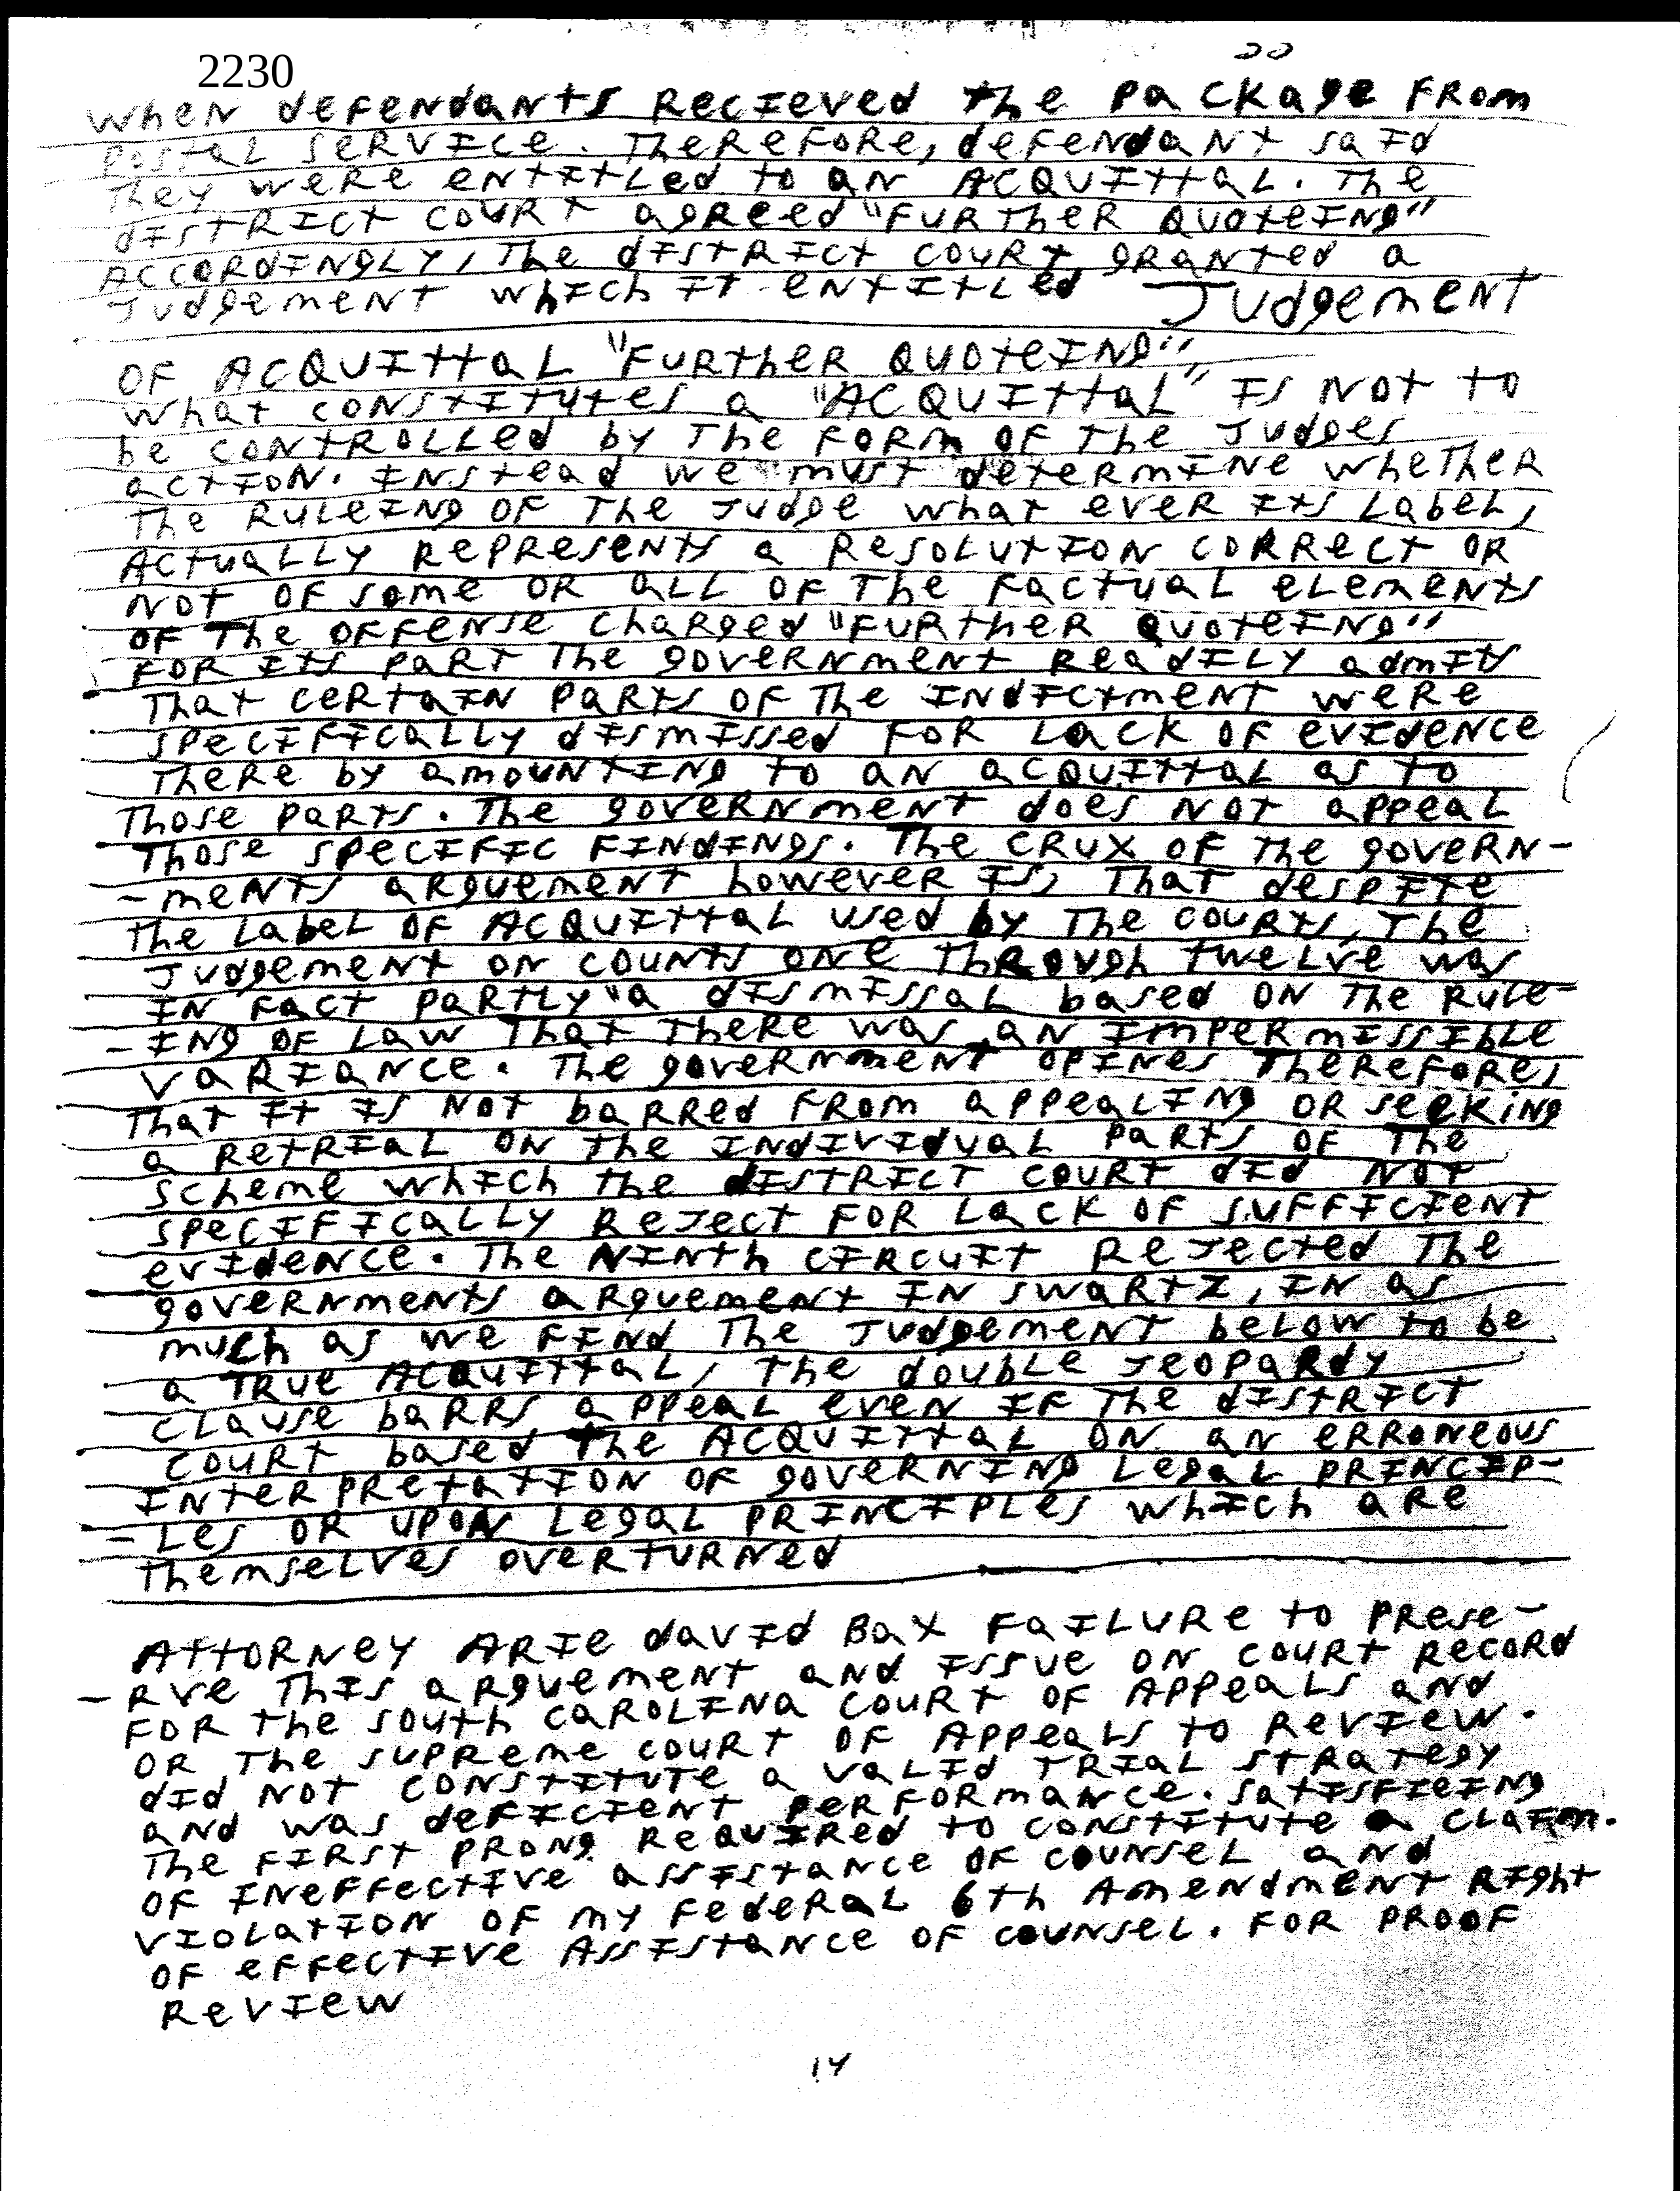 20
2230
When defendants Recieved the package from
postal service. Therefore, defendant said
They were entitled to an ACQUITTAL. The
district court agreed "Further Quoteing"
Accordingly, The district court granted a
Judgement which it entitled Judgement
OF ACQUITTAL "Further Quoteing"
what constitutes a "ACQUITTAL" is not to
be controlled by The form of the Judges
action. Instead we must determine whether
The Ruleing of The Judge what ever its Label,
Actually Represents a Resolution correct or
not of some or all of The factual elements
of The offense charged "Further Quoteing"
For its part The government readily admits
That certain parts of The Indictment were
specifically dismissed for Lack of evidence
There by amounting to an acquittal as to
Those parts. The government does not appeal
Those specific findings. The crux of the govern-
-ments arguement however is, That despite
the Label of Acquittal used by The courts, The
Judgement on counts one through twelve was
in fact partly "a dismissal based on the Rule-
-ing of Law That there was an impermissible
variance. The government opines Therefore,
That it is not barred from appealing or seeking
a retrial on the individual parts of The
scheme which the district court did not
specifically reject for Lack of sufficient
evidence. The Ninth circuit Rejected The
governments arguement in swartz, in as
much as we find The Judgement below to be
a True Acquittal, The double Jeopardy
clause barrs appeal even if The district
court based The Acquittal on an erroneous
interpretation of governing Legal princip-
-Les or upon Legal principles which are
themselves overturned
Attorney Arie david Bax Failure to prese-
-rve This arguement and issue on court record
for the south Carolina court of Appeals and
or The supreme court of Appeals to Review.
did not constitute a valid Trial strategy
and was deficient performance. satisfieing
The first prong Required to constitute a claim.
of ineffective assistance of counsel and
violation of my Federal 6th Amendment Right
of effective Assistance of counsel. For proof
Review
14